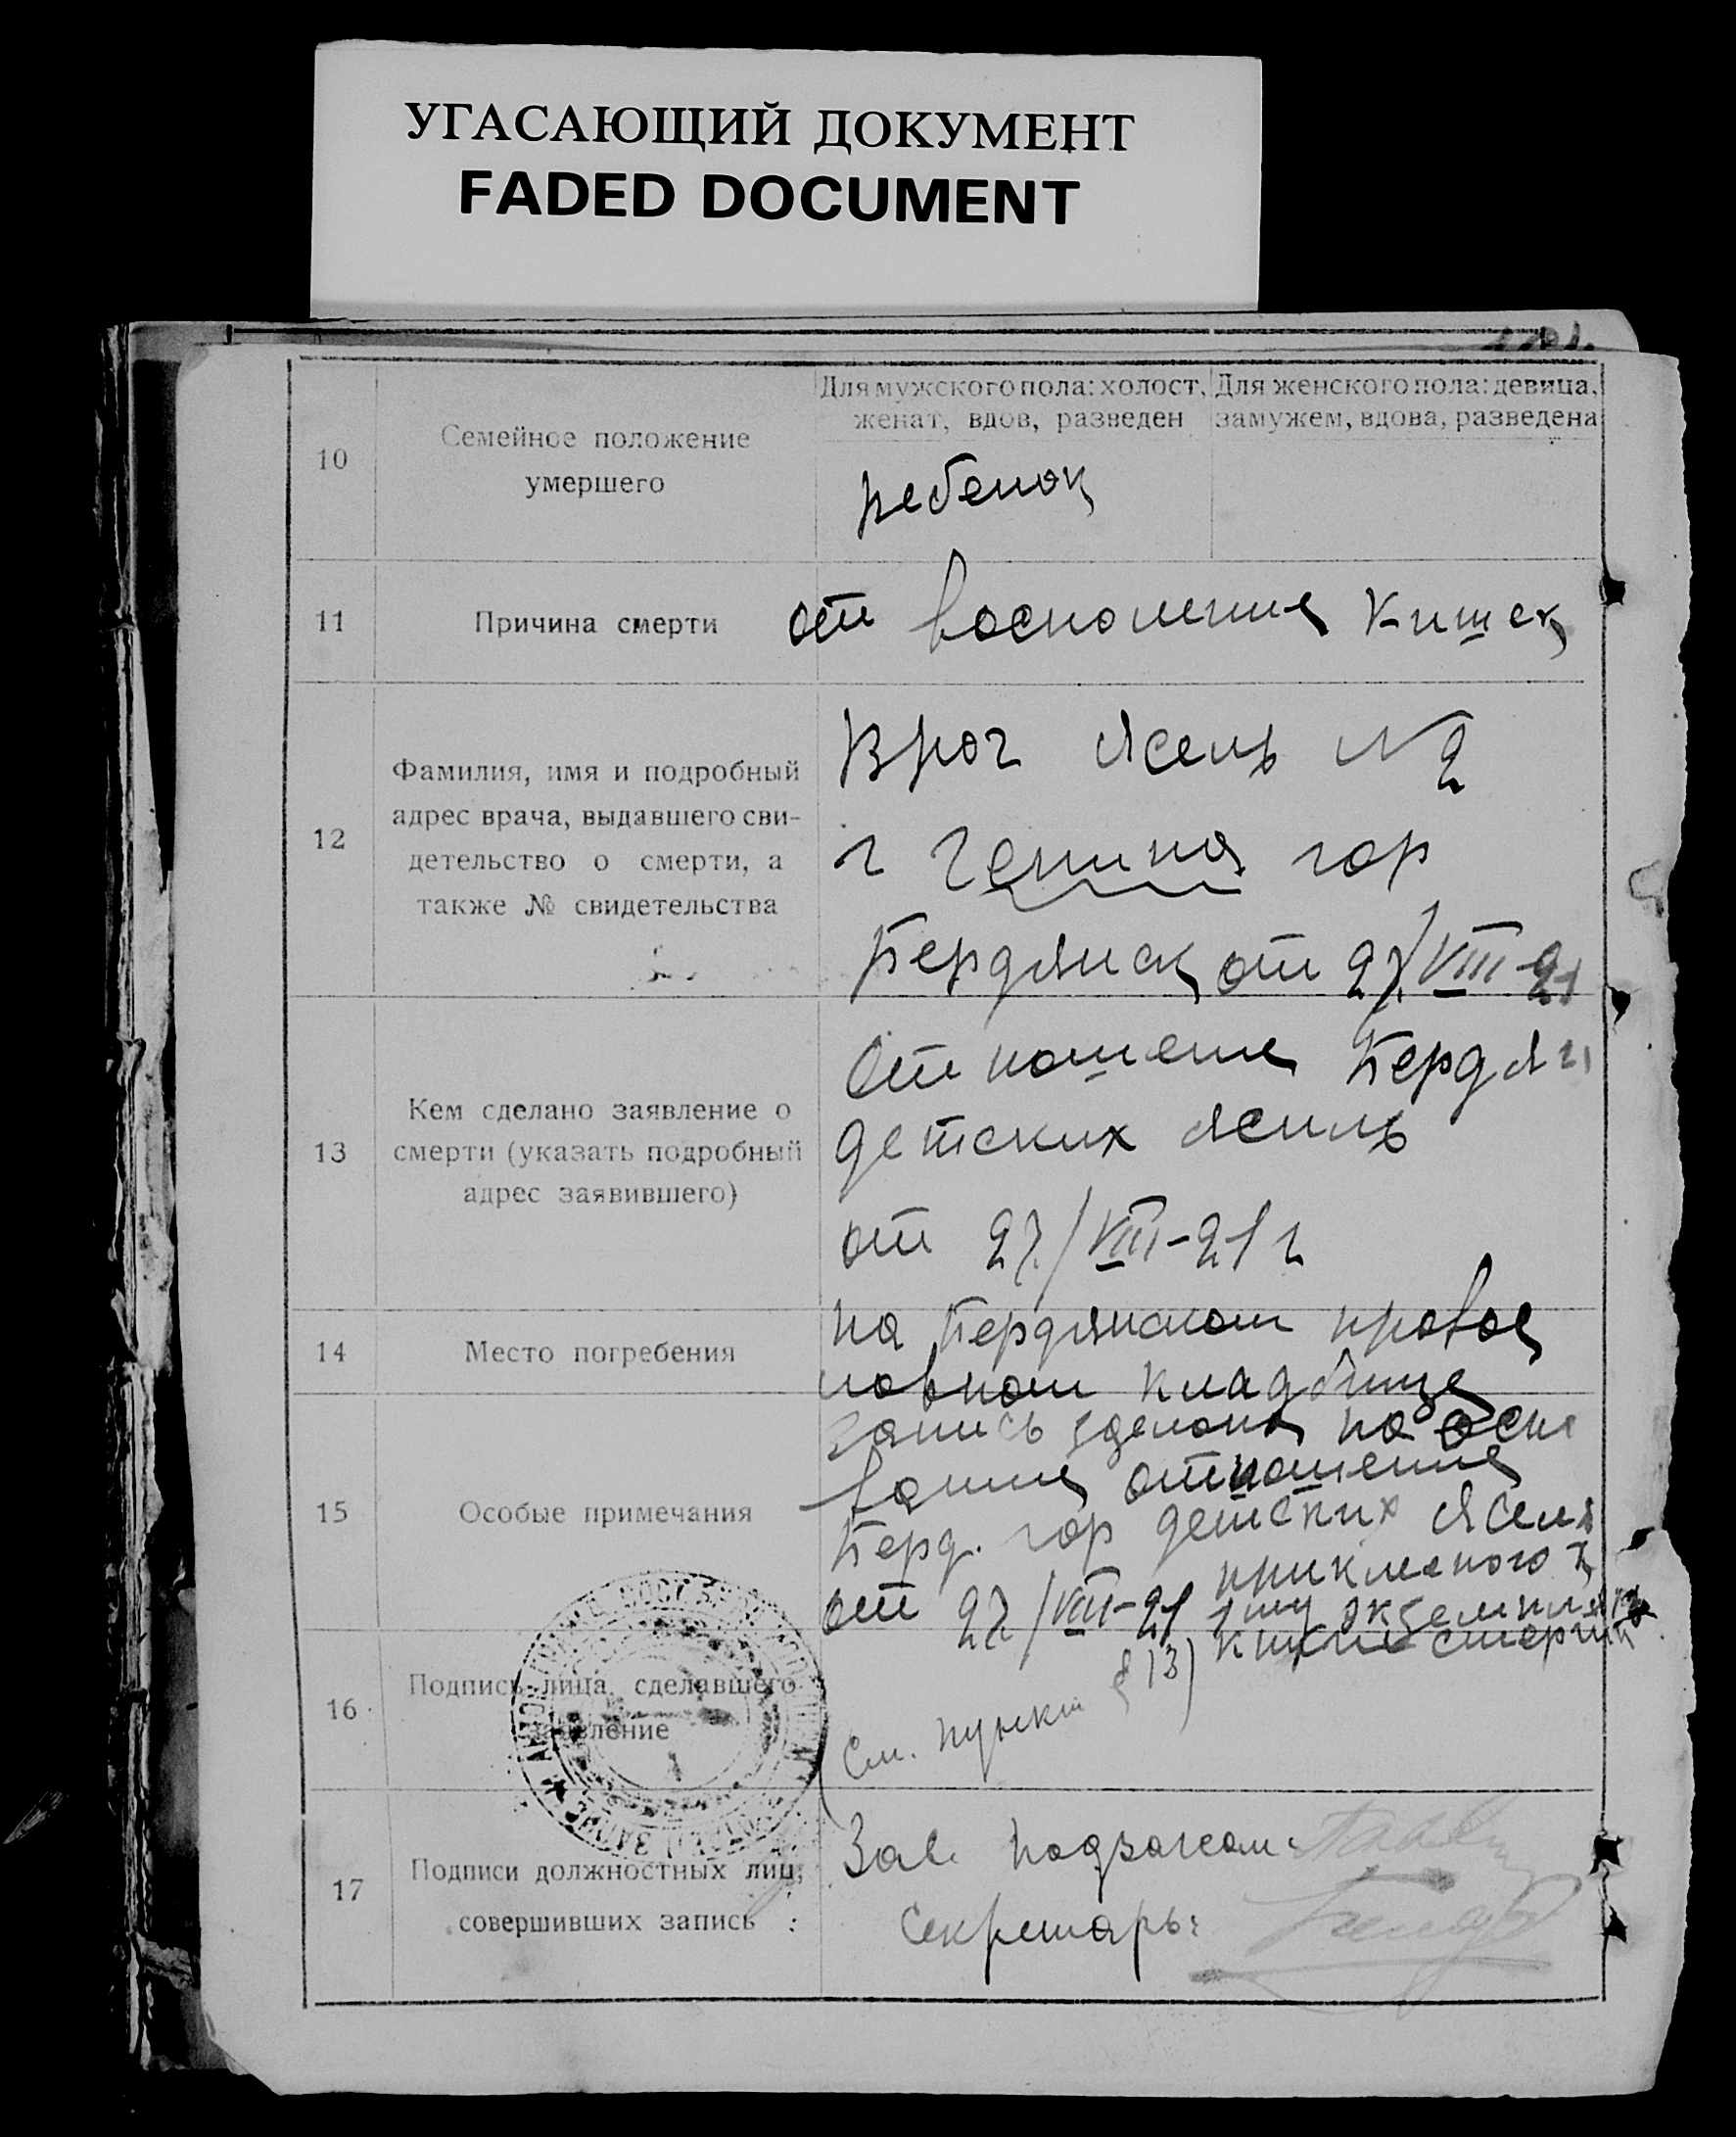 УГАСАЮЩИЙ ДОКУМЕНТ
FADED DOCUMENT
10
Семейное положение
умершего
Для мужского пола: холост,
женат, вдов, разведен
Для женского пола: девица,
замужем, вдова, разведена
ребенок
11
Причина смерти
от восполение кишек
12
Фамилия, имя и подробный
адрес врача, выдавшего сви-
детельство о смерти, а
также № свидетельства
Врач Ясель №2
г гор
Бердянск от 27/VIII-21
13
Кем сделано заявление о
смерти (указать подробный
адрес заявившего)
Отношение Бердян
детских ясиль
от 27/VIII-21 г
14
Место погребения
на Бердянском провос
лавном кладбище
15
Особые примечания
запись зделана на осно
вание отношение
Берд. гор детских Яселя
от 27/VIII-21
экземпляру
книги смертий
16
Подпись лица, сделавшего
заявление
См. пункт § 13)
17
Подписи должностных лиц,
совершивших запись :
Зав. подзагсом:
Секретарь: